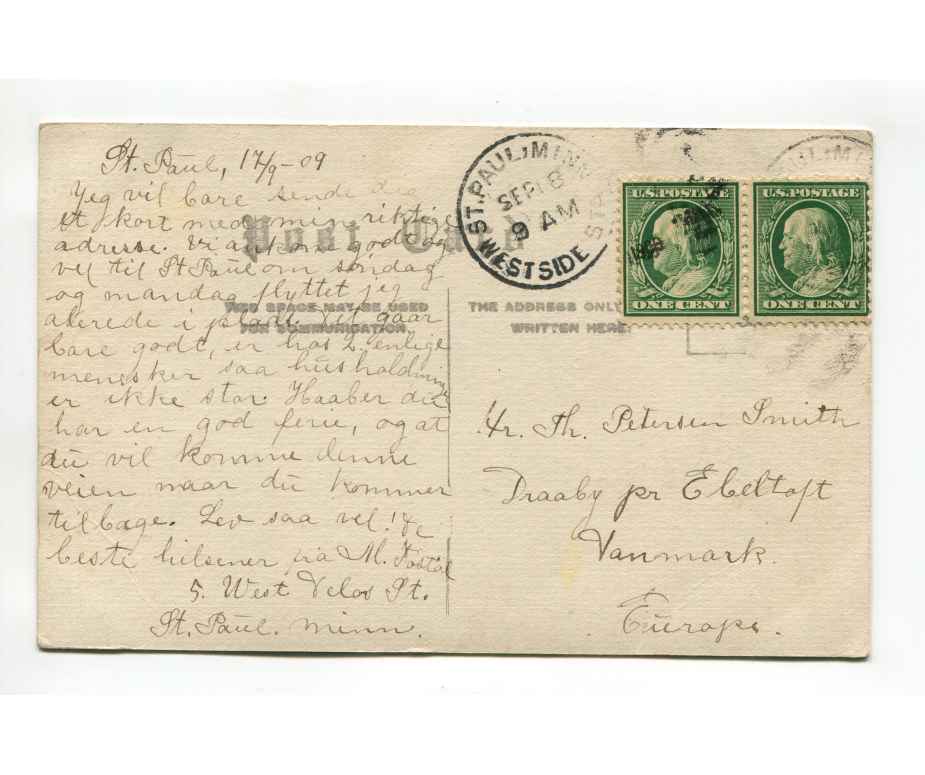 St. Paul, 17/9-09
Jeg vil bare sende dig
et kort med min riktige
adresse. Vi ankom godt og
vel til St Paul om søndag
og mandag flyttet jeg
alerede i plads. Det gaar
bare godt, er hos 2. enlige
mennsker saa husholdning
er ikke stor. Haaber du
har en god ferie, og at
du vil komme denne
veien naar du kommer
tilbage. Lev saa vel! De
beste hilsener fra M.
5. West Delos St.
St. Paul. Minn.
Post Card
THIS SPACE MAY BE USED
FOR COMMUNICATION.
THE ADDRESS ONLY
WRITTEN HERE.
ST. PAUL, MINN.
SEP 18
9 AM
WEST SIDE STA
U.S. POSTAGE
ONE CENT
U.S. POSTAGE
ONE CENT
Hr. Th. Petersen Smith
Draaby pr Ebeltoft
Danmark.
Europe.